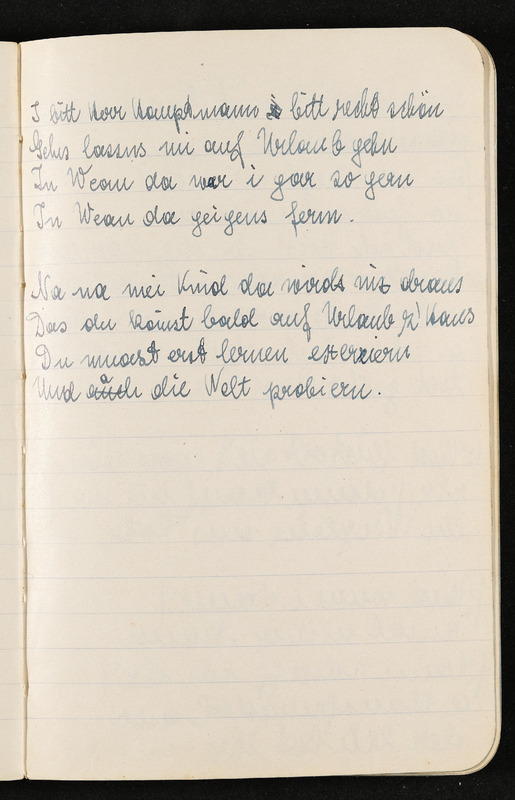 I bitt Herr Hauptmann i bitt recht schön
Gehns lassns mi auf Urlaub gehn
In Wean da war i gar so gern
In Wean da geigens fern.
Na na mei Kind da wirds nix draus
Das du kömst bald auf Urlaub z' Haus
Du muast erst lernen exerziern
Und auch die Welt probiern.